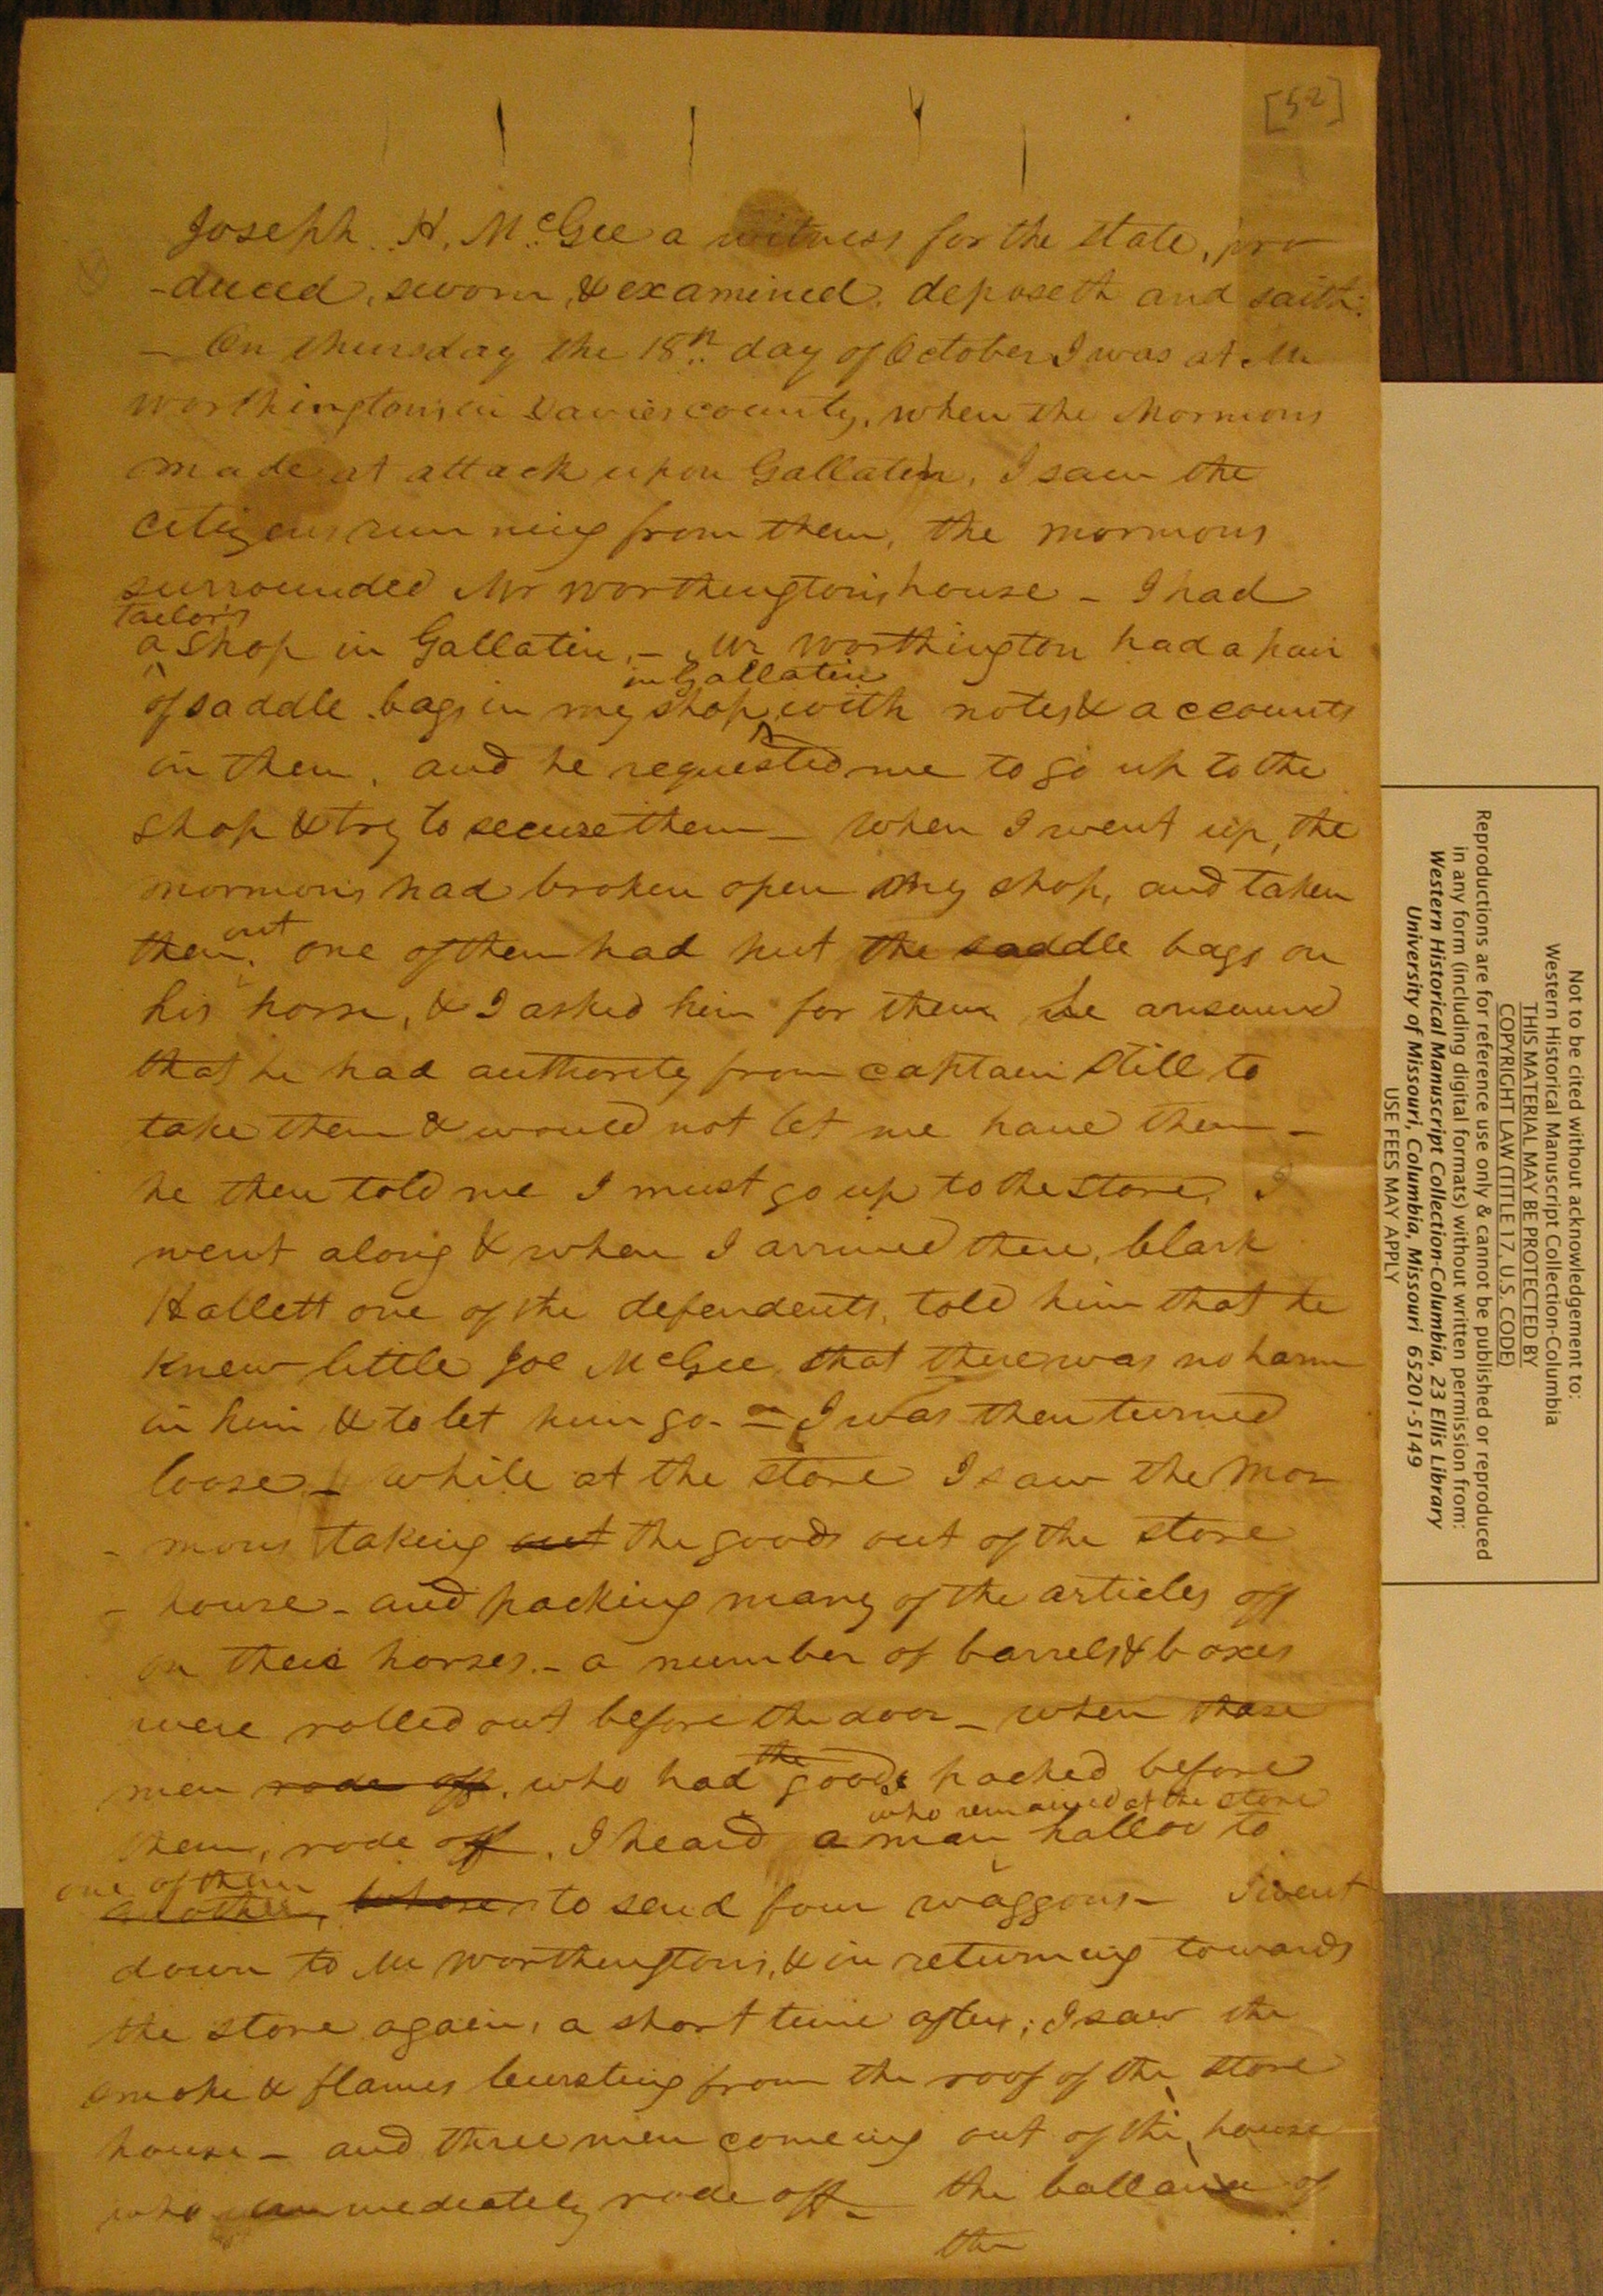 [52]
Joseph. H. McGee a witness for the state, pro
-duced, sworn, & examined. deposeth and saith:
- On thursday the 18th day of October I was at Mr
worthington's in Davies county, when the Mormons
made at attack upon Gallatin, I saw the
citizens running from them, the mormons
surrounded Mr worthington's house - I had
tailor's
a shop in Gallatin, - Mr worthington had a pair
in Gallatin
of saddle bags in my shop, with notes & accounts
in them, and he requested me to go up to the
shop & try to secure them - when I went up, the
mormons had broken open my shop, and taken
out
them, one of them had put the saddle bags on
his horse, & I asked him for them he answered
that he had authority from captain Still to
take them & would not let me have them -
he then told me I must go up to the store, I
went along & when I arrived there, Clark
Hallett one of the defendents, told him that he
knew little Joe McGee, that there was no harm
in him & to let him go. - I was then turned
loose - while at the store I saw the Mor
- mons taking out the goods out of the store
- house - and packing many of the articles off
on their horses. - a number of barrels & boxes
were rolled out before the door - when these
the
men rode off, who had goods packed before
who remained at the store
them, rode off, I heard a man hallow to
one of them
another, to send four waggons - I went
down to Mr worthington's, & in returning towards
the store again, a short time after; I saw the
smoke & flames bursting from the roof of the store
house - and three men comeing out of the house
who immediately rode off - the ballance of
the
Not to be cited without acknowledgement to:
Western Historical Manuscript Collection-Columbia
THIS MATERIAL MAY BE PROTECTED BY
COPYRIGHT LAW (TITLE 17, U.S. CODE)
Reproductions are for reference use only & cannot be published or reproduced
in any form (including digital formats) without written permission from:
Western Historical Manuscript Collection-Columbia, 23 Ellis Library
University of Missouri, Columbia, Missouri 65201-5149
USE FEES MAY APPLY